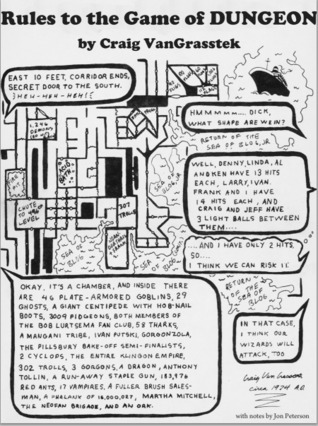 Rules to the Game of DUNGEON
by Craig VanGrasstek
EAST 10 FEET, CORRIDOR ENDS,
SECRET DOOR TO THE SOUTH.
HMMMMM... DICK,
WHAT SHAPE ARE WE IN?
RETURN OF THE
SEA OF GLOG, JR
WELL, DENNY, LINDA, AL
AND KEN HAVE 13 HITS
EACH, LARRY, IVAN
FRANK AND I HAVE
14 HITS EACH, AND
CRAIG AND JEFF HAVE
3 LIGHT BALLS BETWEEN
THEM....
CHUTE
LEVEL
307
TROLLS
...AND I HAVE ONLY 2 HITS,
SO....
I THINK WE CAN RISK IT
OKAY, IT'S A CHAMBER, AND INSIDE THERE
ARE 46 PLATE-ARMORED GOBLINS, 29
GHOSTS, A GIANT CENTIPEDE WITH HOB-NAIL
BOOTS, 3009 PIGEONS, BOTH MEMBERS OF
THE BOB LURTSEMA FAN CLUB, 58 THARKS,
A MANGANI TRIBE, IVAN PUTSKI, GORGONZOLA,
THE PILLSBURY BAKE-OFF SEMI-FINALISTS,
2 CYCLOPS, THE ENTIRE KLINGON EMPIRE,
302 TROLLS, 3 GORGONS, A DRAGON, ANTHONY
TOLLIN, A RUN-AWAY STAPLE GUN, 183,976
RED ANTS, 17 VAMPIRES, A FULLER BRUSH SALES-
MAN, A PHALANX OF 16,000,087, MARTHA MITCHELL,
THE NEOFAN BRIGADE, AND AN ORK.
RETURN
OF THE
SEA OF
IN THAT CASE,
I THINK OUR
WIZARDS WILL
ATTACK, TOO
Craig Van Grasstek
circa 1974 A.D.
with notes by Jon Peterson